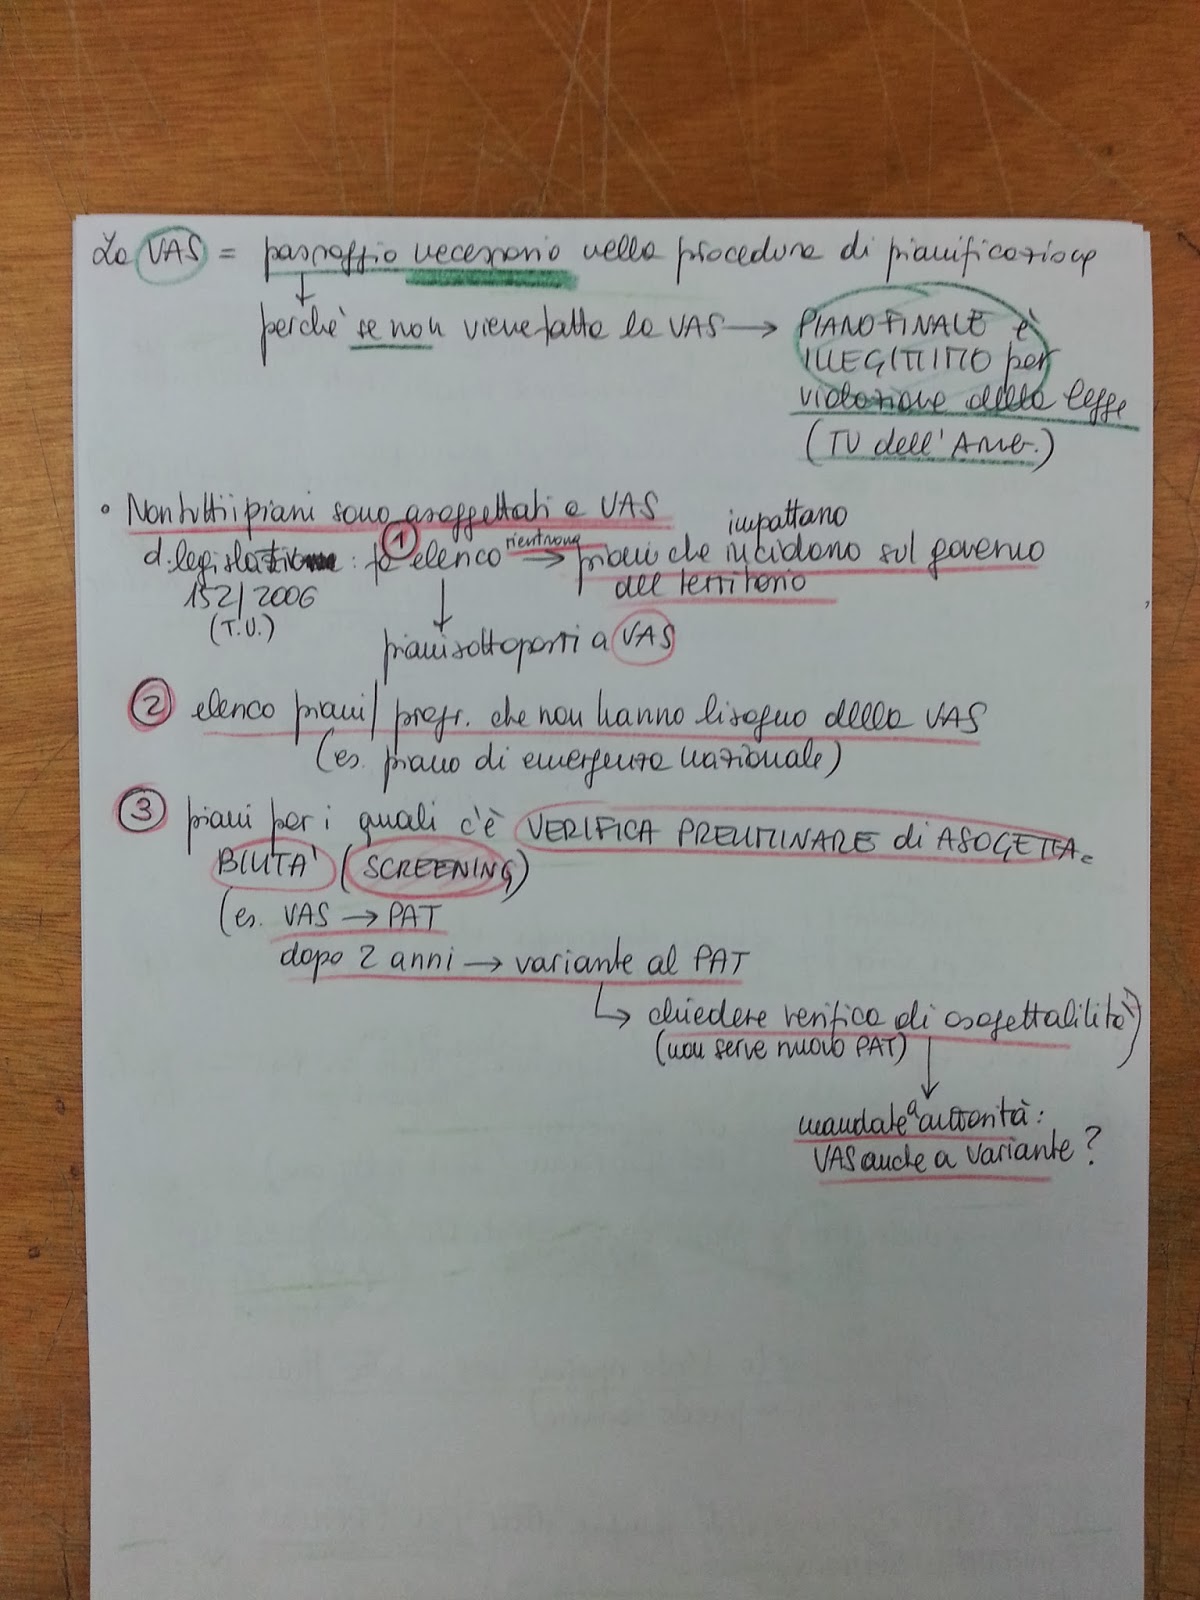 La VAS = passaggio necessario nella procedura di pianificazione
perchè se non viene fatta la VAS → PIANO FINALE è
ILLEGITTIMO per
violazione della legge
(TU dell'Amb.)
• Non tutti i piani sono assoggettati a VAS
impattano
d. legislativo : fa ① elenco rientrano → piani che incidono sul governo
152/2006 del territorio
(T.U.)
↓
piani sottoposti a VAS
② elenco piani/progr. che non hanno bisogno della VAS
(es. piano di emergenza nazionale)
③ piani per i quali c'è VERIFICA PRELIMINARE di ASOGETTA-
BILITA' (SCREENING)
(es. VAS → PAT
dopo 2 anni → variante al PAT
↳ chiedere verifica di asogettabilità)
(non serve nuovo PAT)
↓
mandate a autorità:
VAS anche a variante?